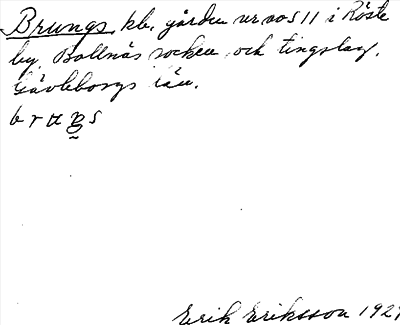 Brungs, kb. gården nr 11 i Röste
by, Bollnäs socken och tingslag,
Gävleborgs län.
Erik Eriksson